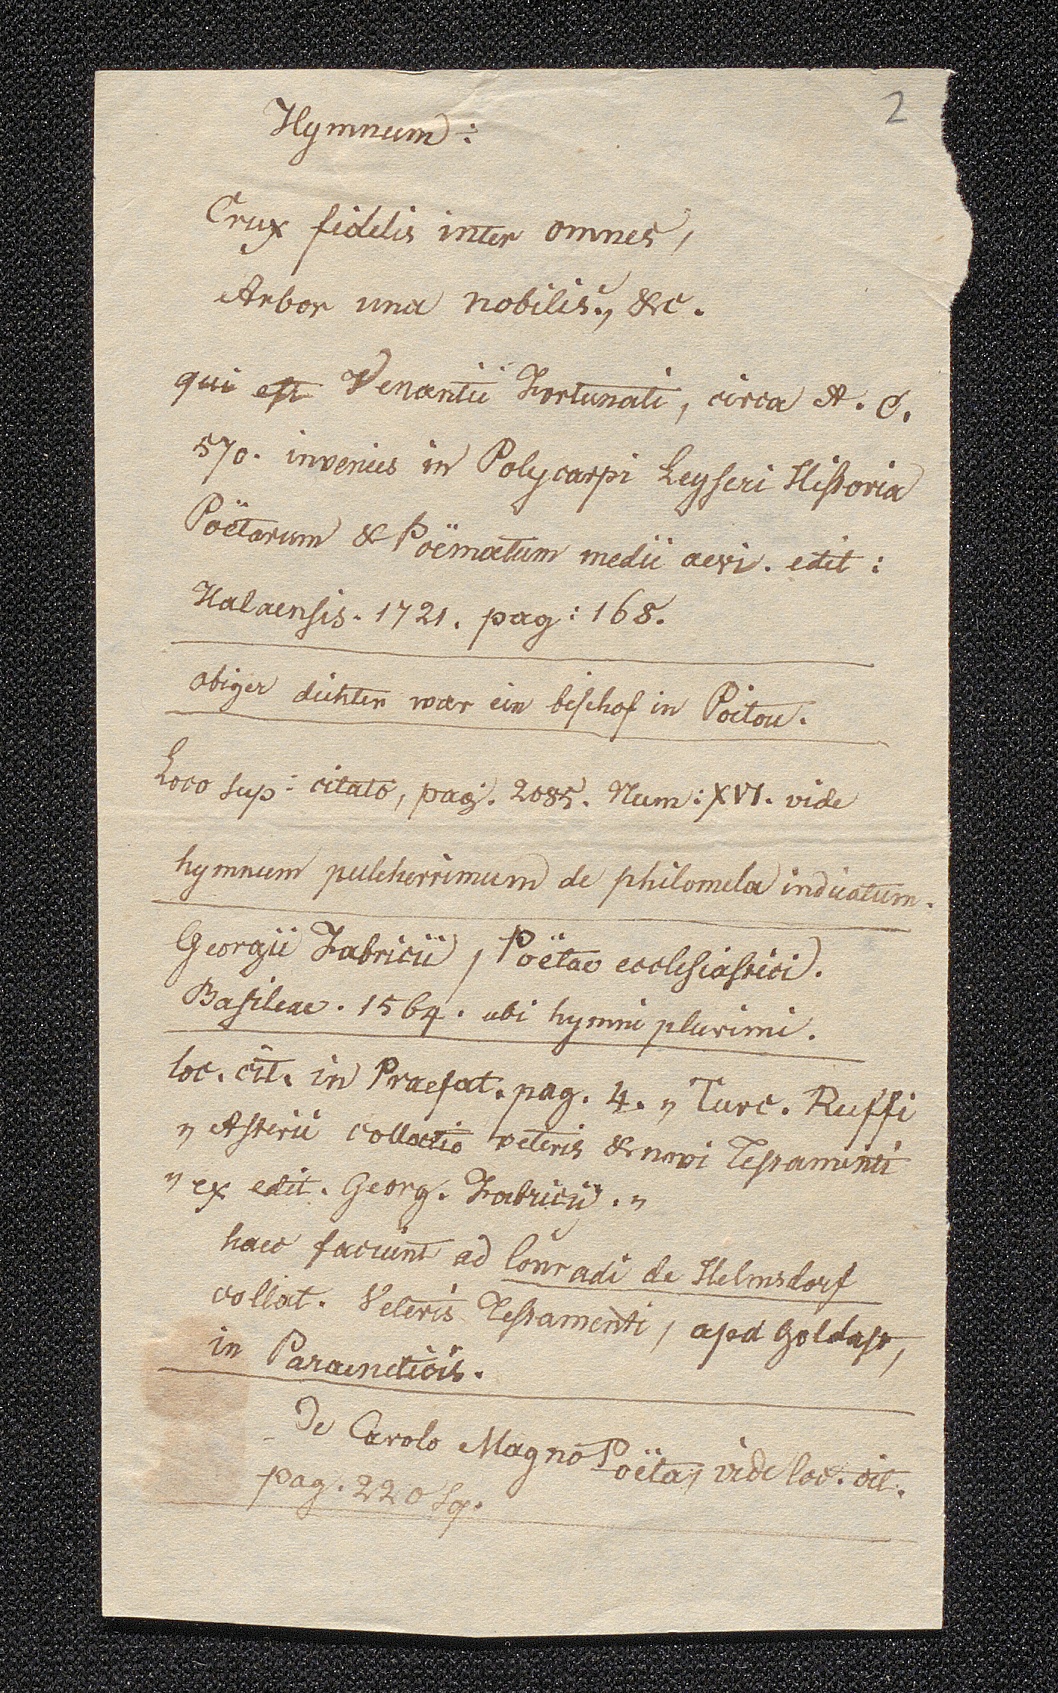 2
Hymnum:
Crux fidelis inter omnes,
Arbor una nobilis„ &c.
qui est Venantii Fortunati, circa A. C.
570. invenies in Polycarpi Leyseri Historia
Poëtarum & Poëmatum medii aevi. edit:
Halaensis. 1721. pag: 168.
obiger dichter war ein bischof in Poitou.
Loco sup: citato, pag. 2085. Num: XVI. vide
hymnum pulcherrimum de philomela indicatum.
Georgii Fabricii, Poëtae ecclesiastici.
Basileae. 1564. ubi hymni plurimi.
loc. cit. in Praefat. pag. 4. „ Turc. Ruffi
„ Asterii collatio veteris & novi Testamenti
„ ex edit. Georg. Fabricii. „
haec faciunt ad Conradi de Helmsdorf
collat. Veteris Testamenti, apd Goldast,
in Paraeneticis.
De Carolo Magno Poëta, vide loc. cit.
pag. 220 sq.